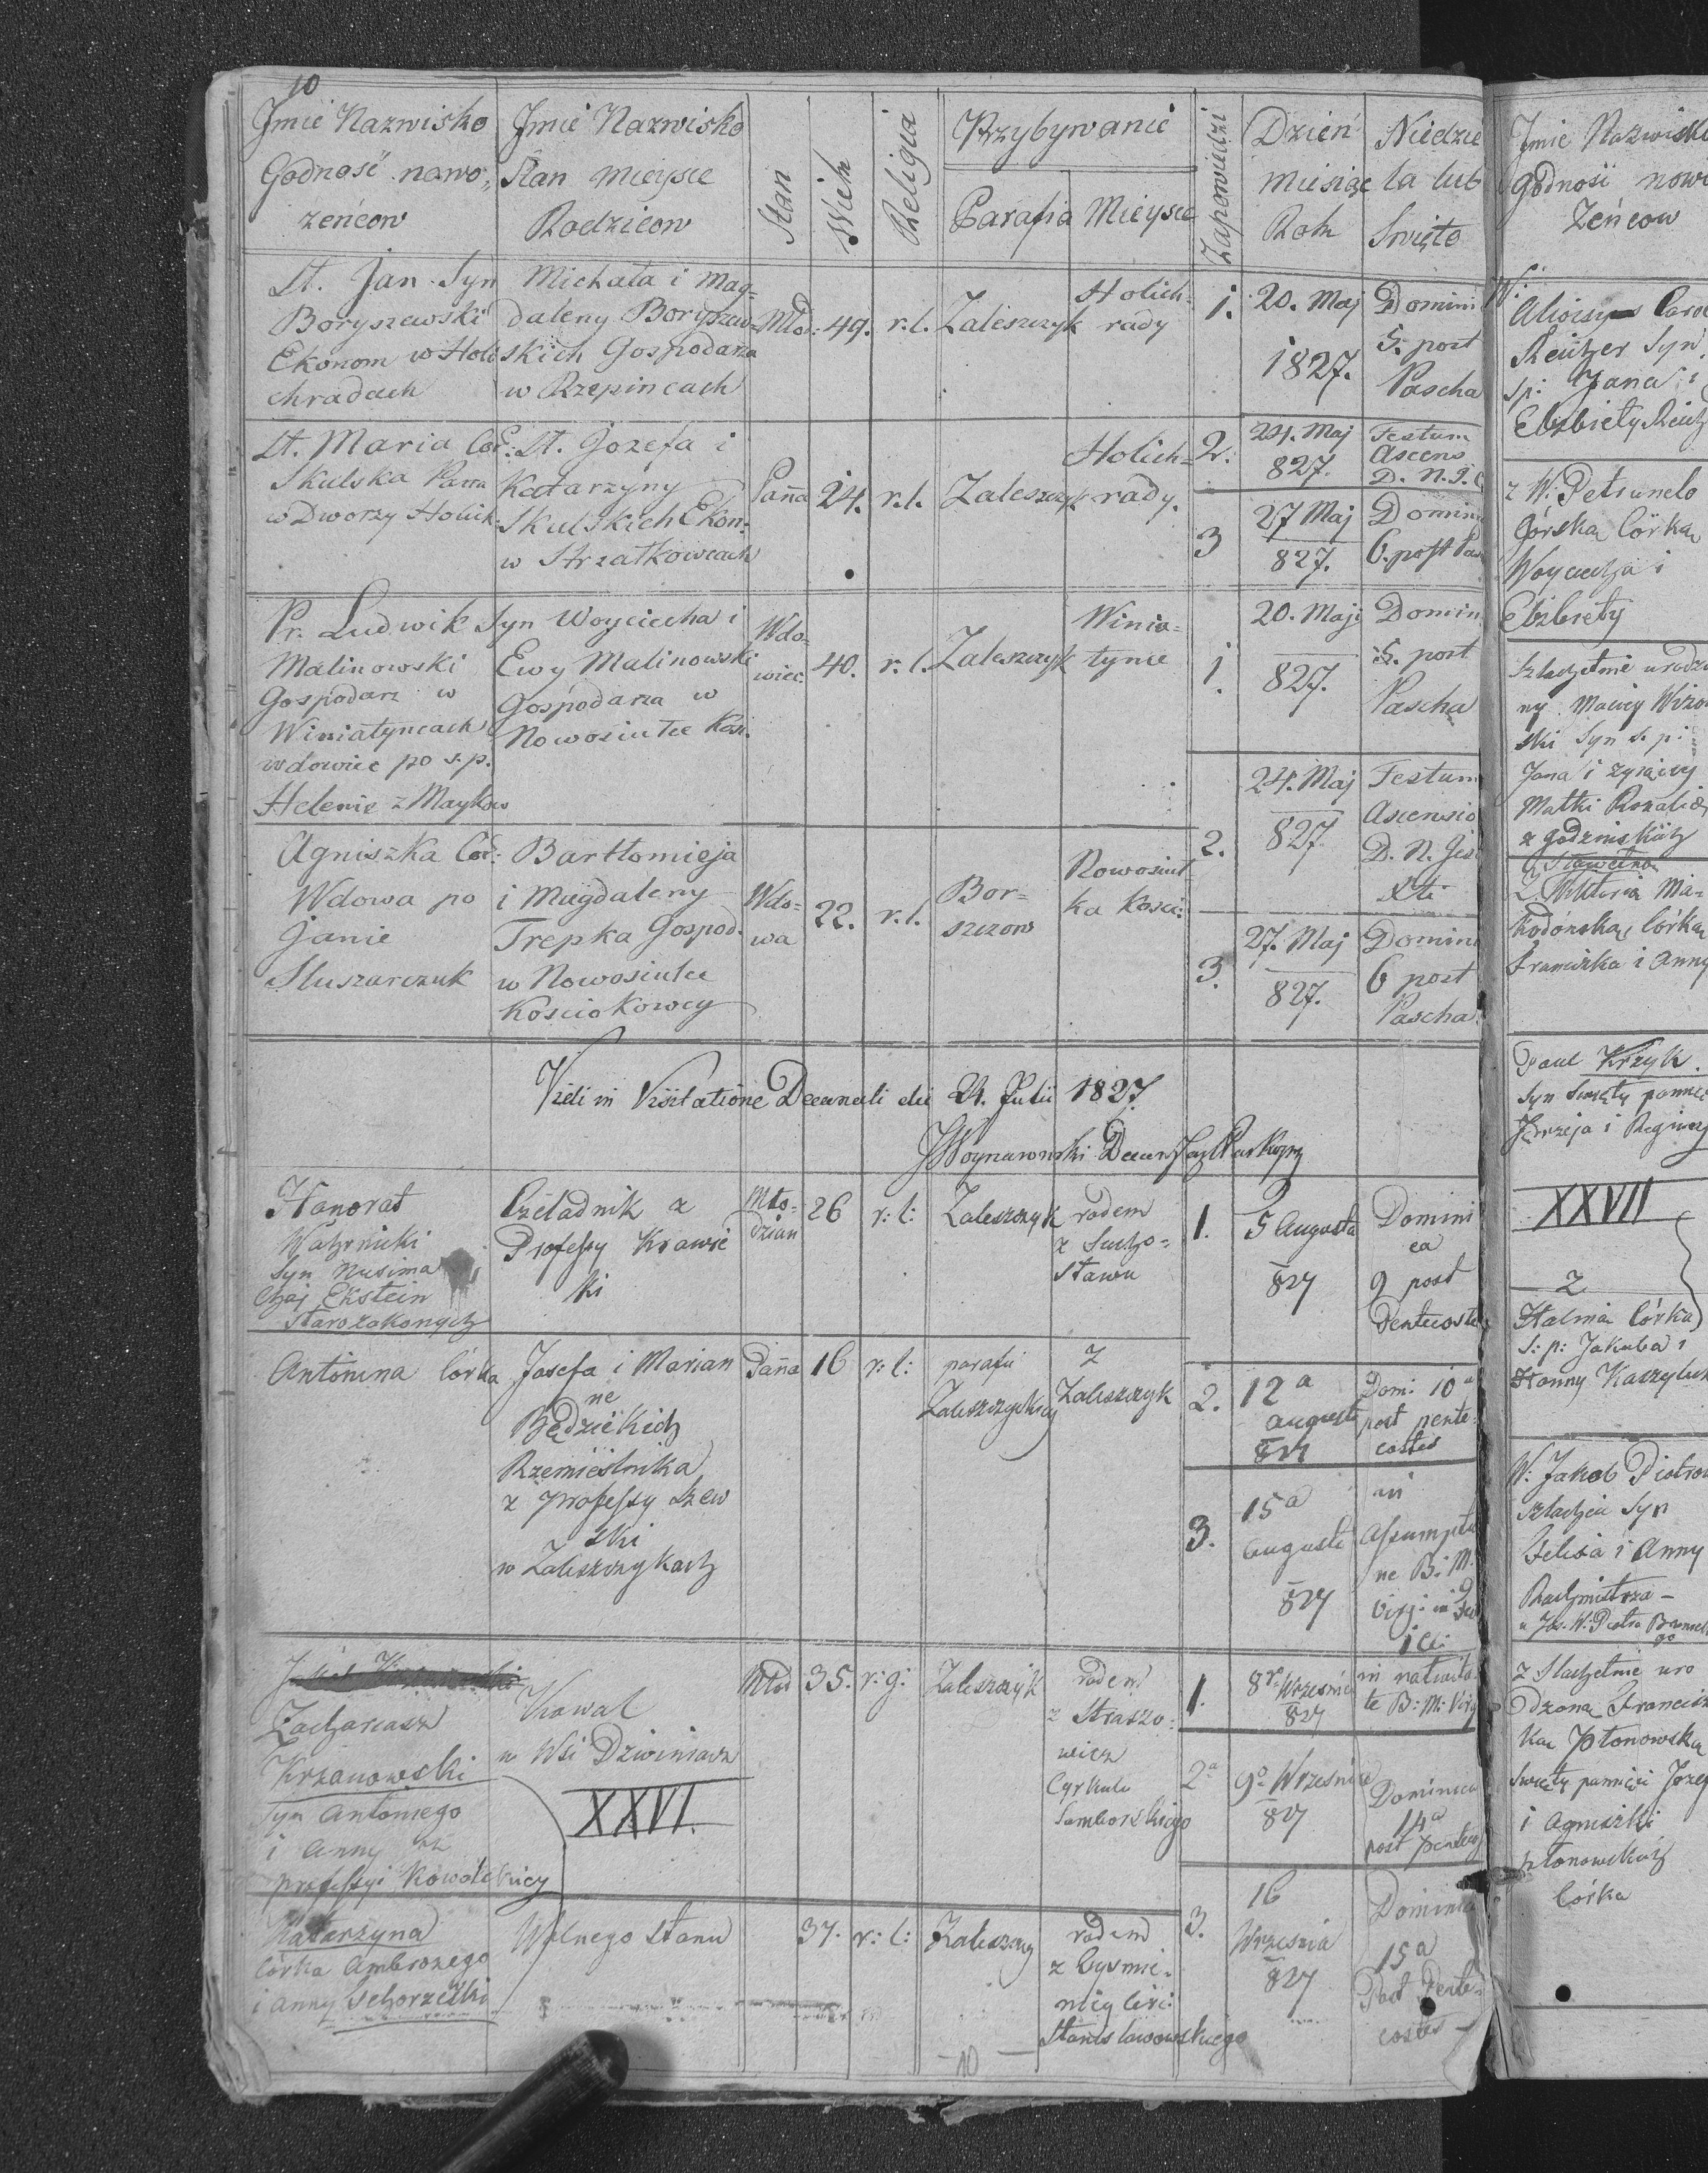 10
Jmie Nazwisko
Godność nowo,
żeńcow
Jmie Nazwisko
Stan mieysce
Rodzicow
Stan
Wiek
Religia
Przybywanie
Parafia
Mieysce
Zapowiedzi
Dzień
miesiąc
Rok
Niedzie
la lub
Swięto
Lt. Jan Syn
Boryszewski
Ekonom w Holi
chradach
Michała i Mag=
daleny Boryszew=
skich Gospodarza
w Rzepincach
Młod:
49.
r.l.
Zaleszczyk
Holich=
rady
1.
20. Maj
1827.
Domini
5. post
Pascha
Lt. Maria Cór:
Skulska Panna
w Dworzy Holich:
Lt. Jozefa i
Katarzyny
Skulskich Ekon:
w Strzałkowcach
Pañna
24.
r.l.
Zaleszczyk
Holich=
rady.
2.
24. Maj
827.
Festum
Ascens
D. N. J. C
3
27 Maj
827.
Domin
6. post Pas
Pr. Ludwik Syn
Malinowski
Gospodarz w
Winiatyncach
wdowiec po s.p.
Helenie z Maykow
Woyciecha i
Ewy Malinowski
Gospodarza w
Nowosiułce Kosi.
Wdo=
wiec.
40.
r.l.
Zaleszczyk
Winia=
tynie
1.
20. Maji
827.
Domin
5. post
Pascha
2.
24. Maj
827.
Festum
Ascensio
D. N. Jes
Xti
Agniszka Cór:
Wdowa po
Janie
Sluszarczuk
Bartłomieja
i Magdaleny
Trepka Gospod.
w Nowosiułce
Kosciokowcy
Wdo=
wa
22.
r.l.
Bor=
szczow
Nowosiuł
ka Kosci:
3.
27. Maj
827.
Domini
6 post
Pascha
Vidi in Visitatione Decanali die 24. Julii 1827.
JWoynarowski Decan
Honorat
Syn Nusima
Chaj Ekstein
Starozakonych
Czeladnik z
Professy Krawie
ki
Mło=
dzian
26
r: l:
Zaleszczyk
rodem
z Sucho=
stawu
1.
5 Augusta
827
Domini
ca
9 post
Pentecoste
Antonina Córka
Josefa i Marian
ne
Będzieckich
Rzemieślnika
z professy Szew
ski
w Zaleszczykach
Pañna
16
r: l:
parafii
Zaleszczyckiey
Z
Zaleszczyk
2.
12a
augusti
827
Dom: 10a
post pente=
costes
3.
15a
augusti
827
in
Assumptio
ne B: M.
Virg:
Zachariasz
Krzanowski
syn Antoniego
i Anny z
professyi Kowalskiey
Kowal
w Wsi Dzwiniacz
XXVI.
Młod
35.
r: g:
Zaleszczyk
rodem
z Straszo=
wicz
Cyrkulu
Samborskiego
1.
8go Wrzesnia
827
in nativita
te B: M: Virg
2a
9o Wrzesnia
827
Dominica
14a
post pentecos
Katarzyna
Córka Ambrozego
i Anny
Wolnego Stanu
37.
r: l:
Zaleszczy
rodem
z Cysmie=
nicy Cir:
Stanislawowskiego
3.
16
Wrzesnia
827
Dominica
15a
Post Pente=
costes
10
Jmie Nazwisko
godnosi nowo
Zeńcow
W:
Aloisyus Carol
Reützer Syn
sp: Jana i
Elzbiety Reütz
z W: Petrunela
Górska Córka
Woyciecha i
Elzbiety
Szlachetnie urodzo
ny Maciey
ski Syn s. p:
Jana i zyiącey
Matki Rozalie
z Godzinskich
Z Wiktoria Ma=
kodońska, Córka
Franciszka i Anny
Paul Krzyk.
syn swięty pamięc
Jędrzeja i Reginy
XXVII
Z
Halma Córka
S: p: Jakuba i
Hanny Kaszyluk
W: Jakob Piotrow
szlachcic syn
Felixa i Anny
Rachmistrza -
z Slachetnie uro
dzona Francisz
ka Płonowska
swięty pamięci Jozef
i Agniszki
Płonowskich
Córka